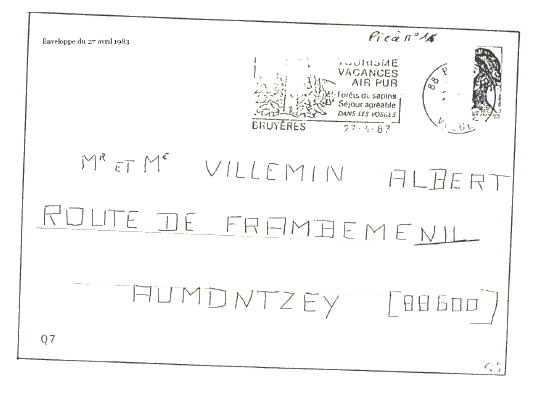 Enveloppe du 27 avril 1983
Pièce n° 14
TOURISME
VACANCES
AIR PUR
Forêts de sapins
Séjour agréable
DANS LES VOSGES
BRUYÈRES
27-4-83
88
VOSGES
Mr ET Me VILLEMIN ALBERT
ROUTE DE FRAMBEMENIL
AUMONTZEY [88600]
Q7